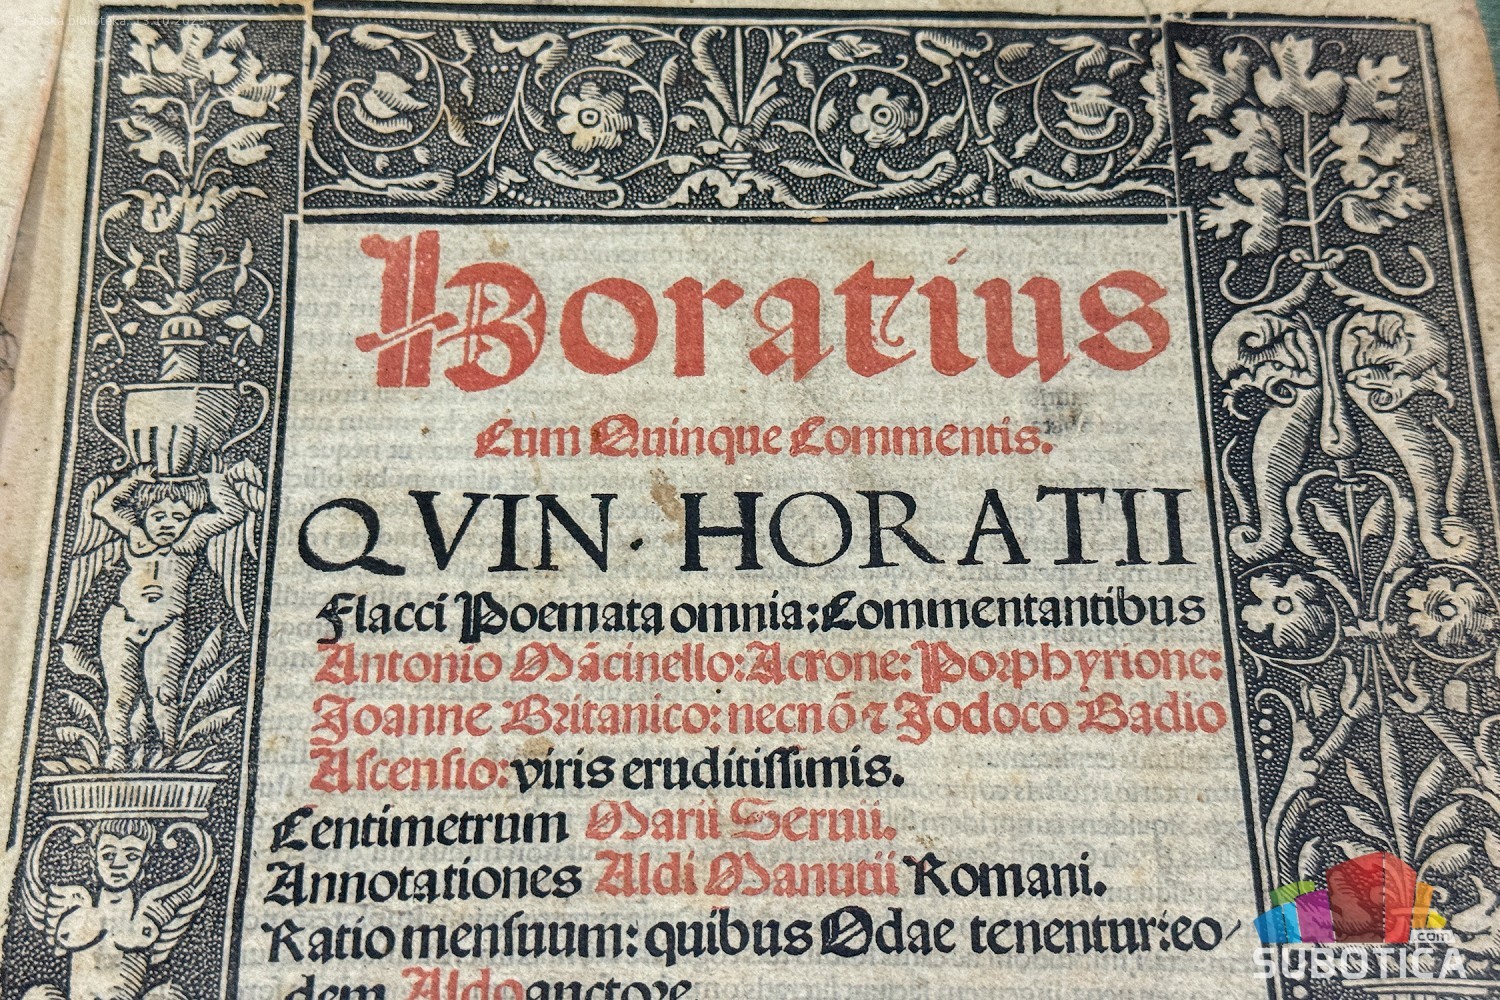 Gradska biblioteka, 13.10.2025.
Horatius
Cum Quinque Commentis.
QVIN · HORATII
Flacci Poemata omnia: Commentantibus
Antonio Mācinello: Acrone: Porphyrione:
Joanne Britanico: necnō ⁊ Jodoco Badio
Aſcenſio: viris eruditiſſimis.
Centimetrum Marii Seruii.
Annotationes Aldi Manutii Romani.
Ratio menſuum: quibus Odae tenentur: eo/
dem Aldo auctore.
.com
SUBOTICA